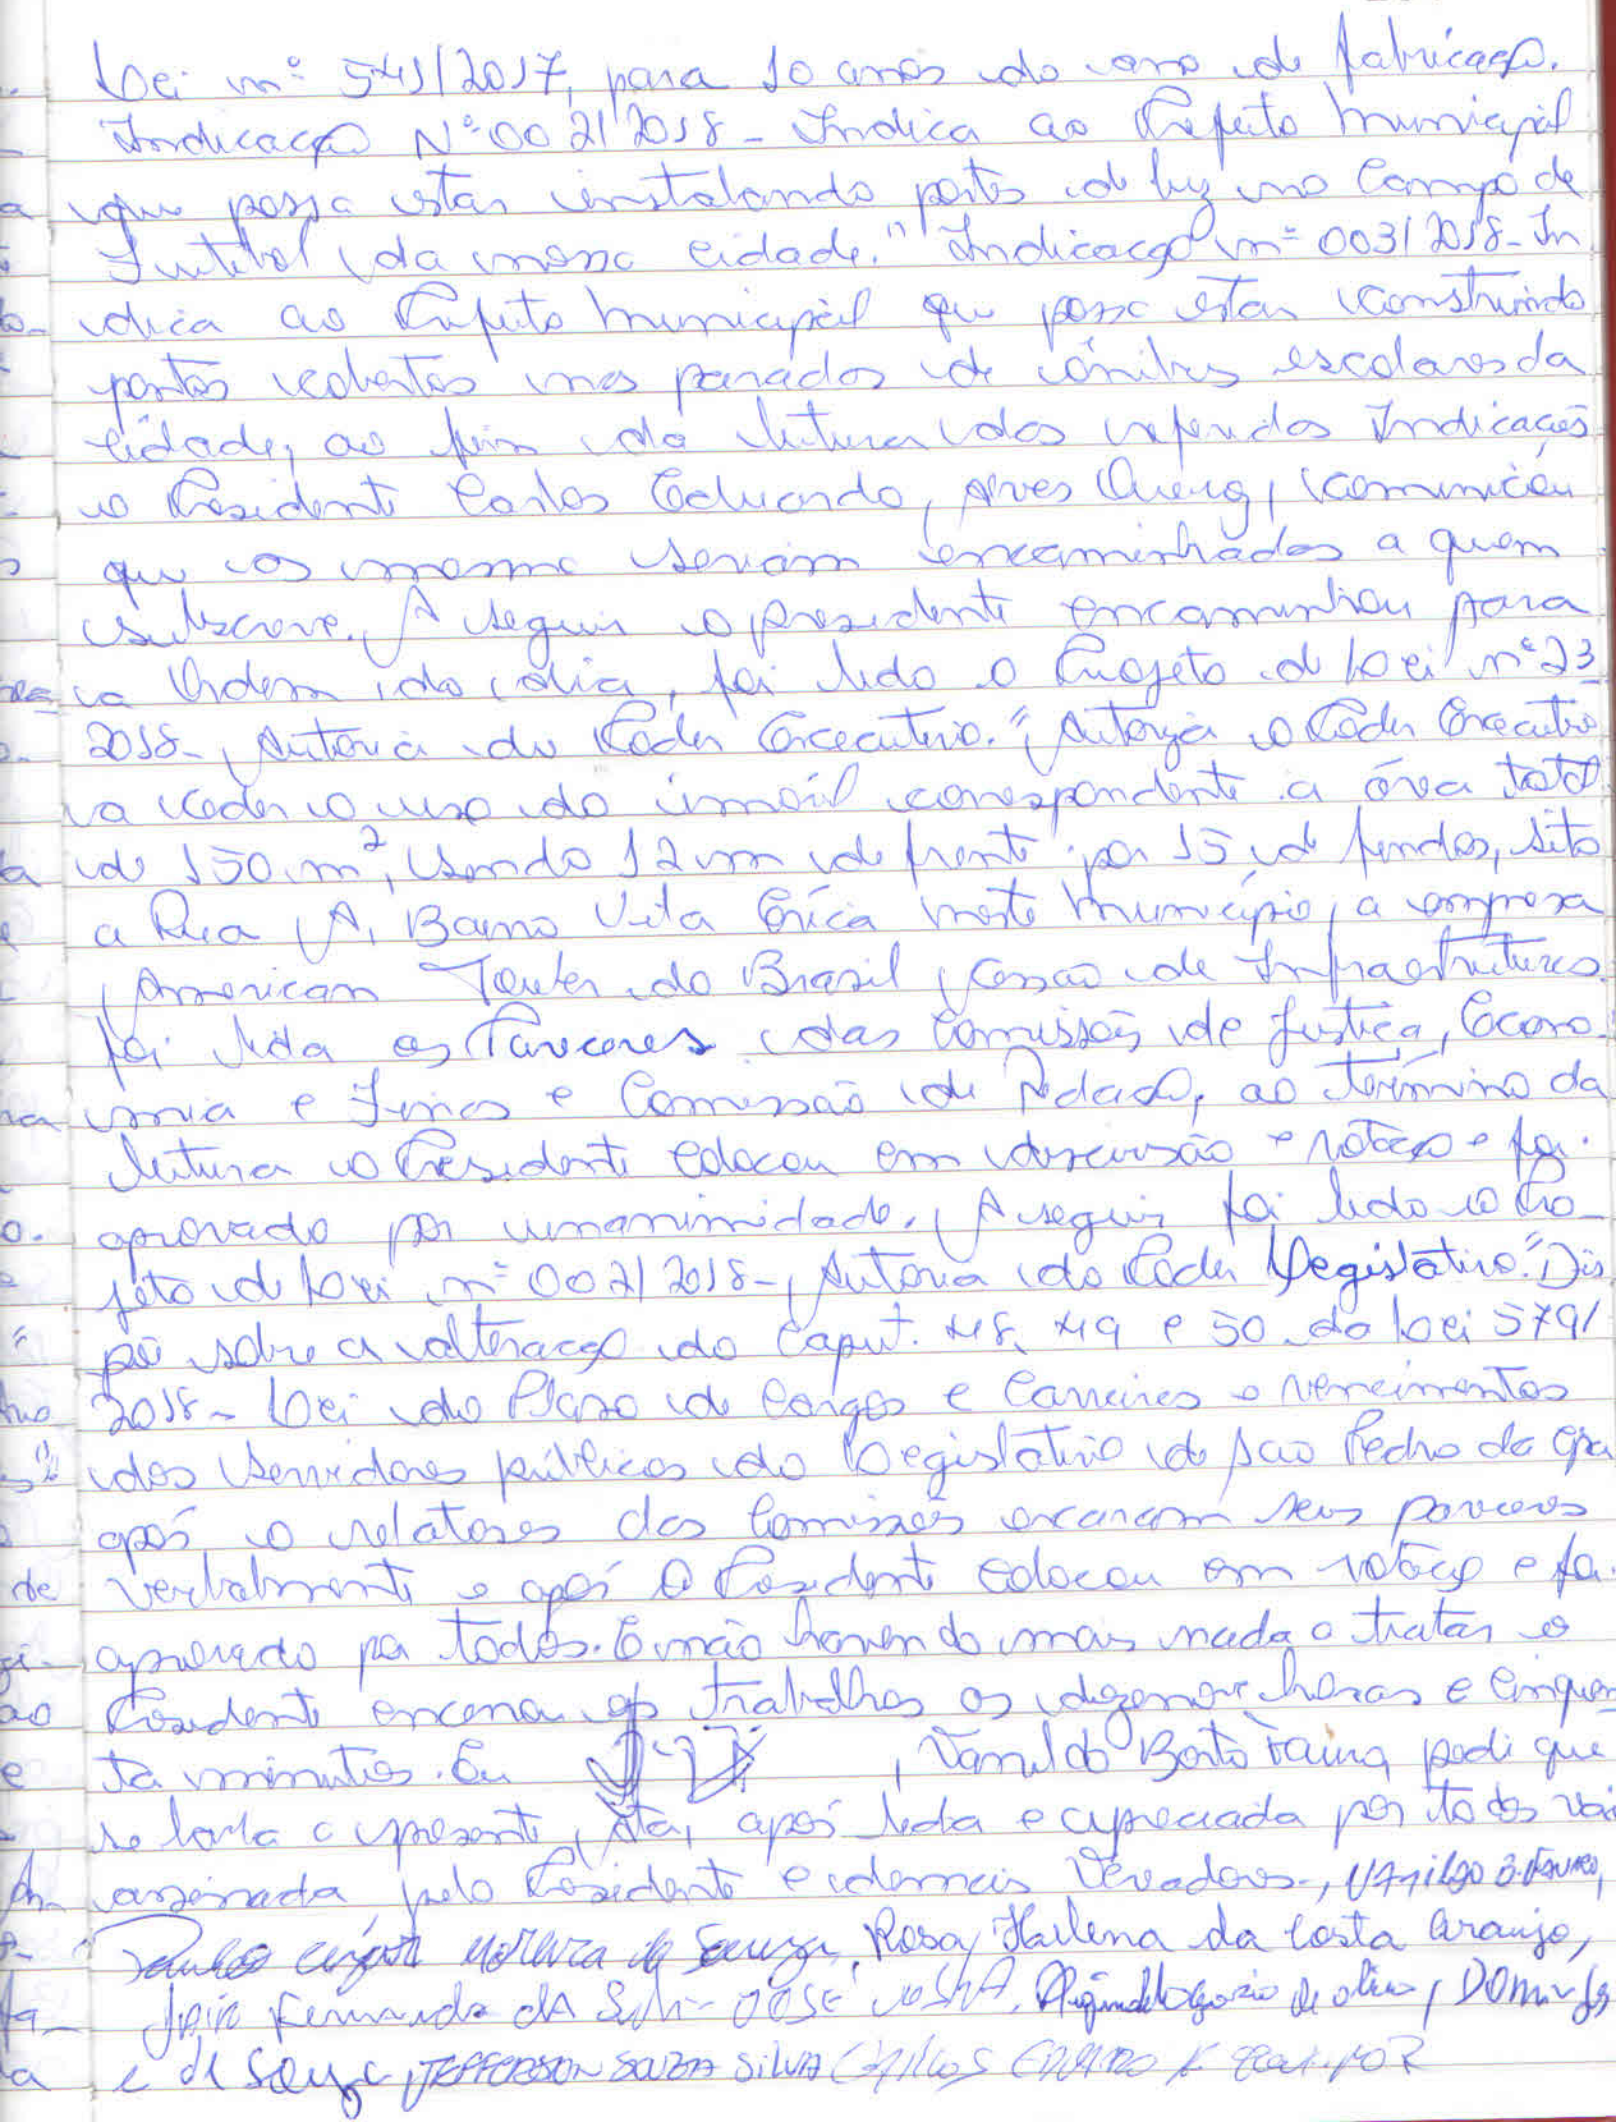 Lei nº 541/2017, para 10 anos do ano de fabricação.
Indicação Nº 002/2018 - Indica ao Prefeito Municipal
que possa estar instalando postes de luz no Campo de
Futebol da nossa cidade." Indicação nº 003/2018 - In
dica ao Prefeito Municipal que possa estar construindo
pontos cobertos nas paradas de ônibus escolares da
cidade, ao fim da leitura das referidas Indicações
o Presidente Carlos Eduardo, Alves comunicou
que os mesmo seriam encaminhados a quem
subscreve. A seguir o presidente encaminhou para
a Ordem do dia, foi lido o Projeto de Lei nº 23
2018 - Autoria do Poder Executivo. "Autoriza o Poder Executivo
a ceder o uso do imóvel correspondente a área total
de 150 m², sendo 12 m de frente por 15 de fundos, sito
a Rua A, Bairro Vila Érica neste Município, a empresa
American Tower do Brasil, cessão de Infraestruturas.
foi lida os Pareceres das Comissões de Justiça, Econo-
mia e Finças e Comissão de Redação, ao término da
leitura o Presidente colocou em discursão e votação e foi
aprovado por unanimidade. A seguir foi lido o Pro-
jeto de Lei nº 002/2018 - Autoria do Poder Legislativo. "Dis
põe sobre a alteração do Caput. 48, 49 e 50 da Lei 579/
2018 - Lei do Plano de Cargos e Carreiras e vencimentos
dos Servidores públicos do Legislativo de São Pedro da
após o relatores das Comissões exararam seus pareceres
verbalmente e após O Presidente colocou em votação e foi
aprovado por todos. E não havendo mais nada a tratar o
Presidente encerrou os trabalhos as dezenove horas e cinquen
ta minutos. Eu , Vanildo pedi que
se lavra a presente Ata, após lida e apreciada por todos vai
assinada pelo Presidente e demais Vereadores.,
Moreira de Souza, Rosa Helena da Costa Araujo,
João Fernando da José de Oliveira, Domingos
e de Souza, JEFFERSON SOUZA SILVA